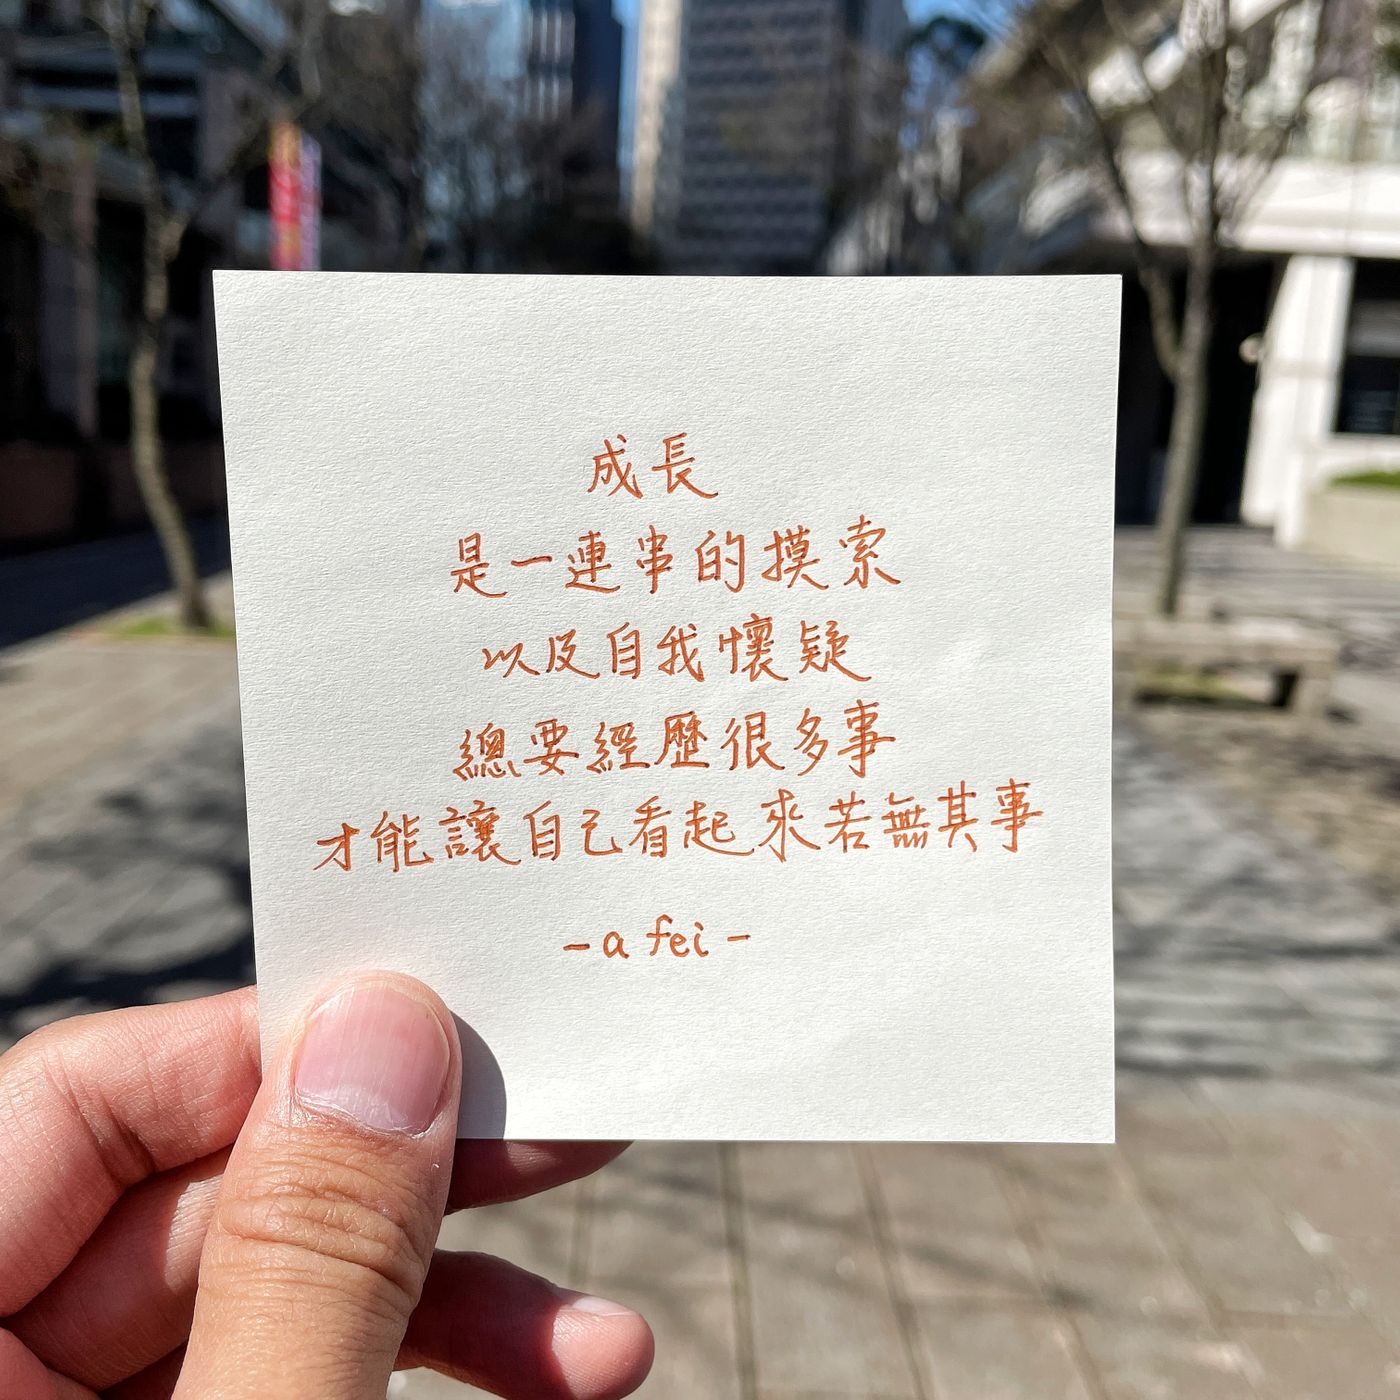 成長
是一連串的摸索
以及自我懷疑
總要經歷很多事
才能讓自己看起來若無其事
- a fei -